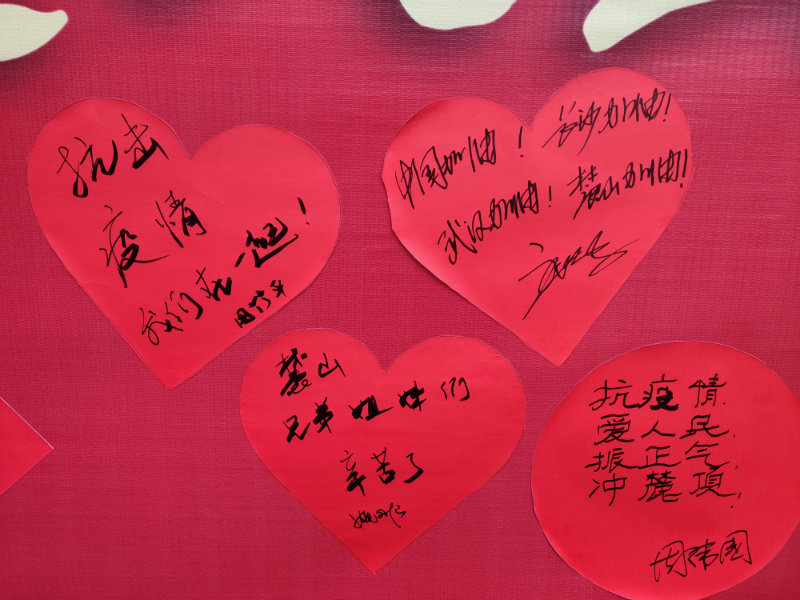 抗击
疫情
我们在一起!
中国加油! 长沙加油!
武汉加油! 麓山加油!
麓山
兄弟姐妹们
辛苦了
抗疫情,
爱人民,
振正气,
冲麓项!
周伟国